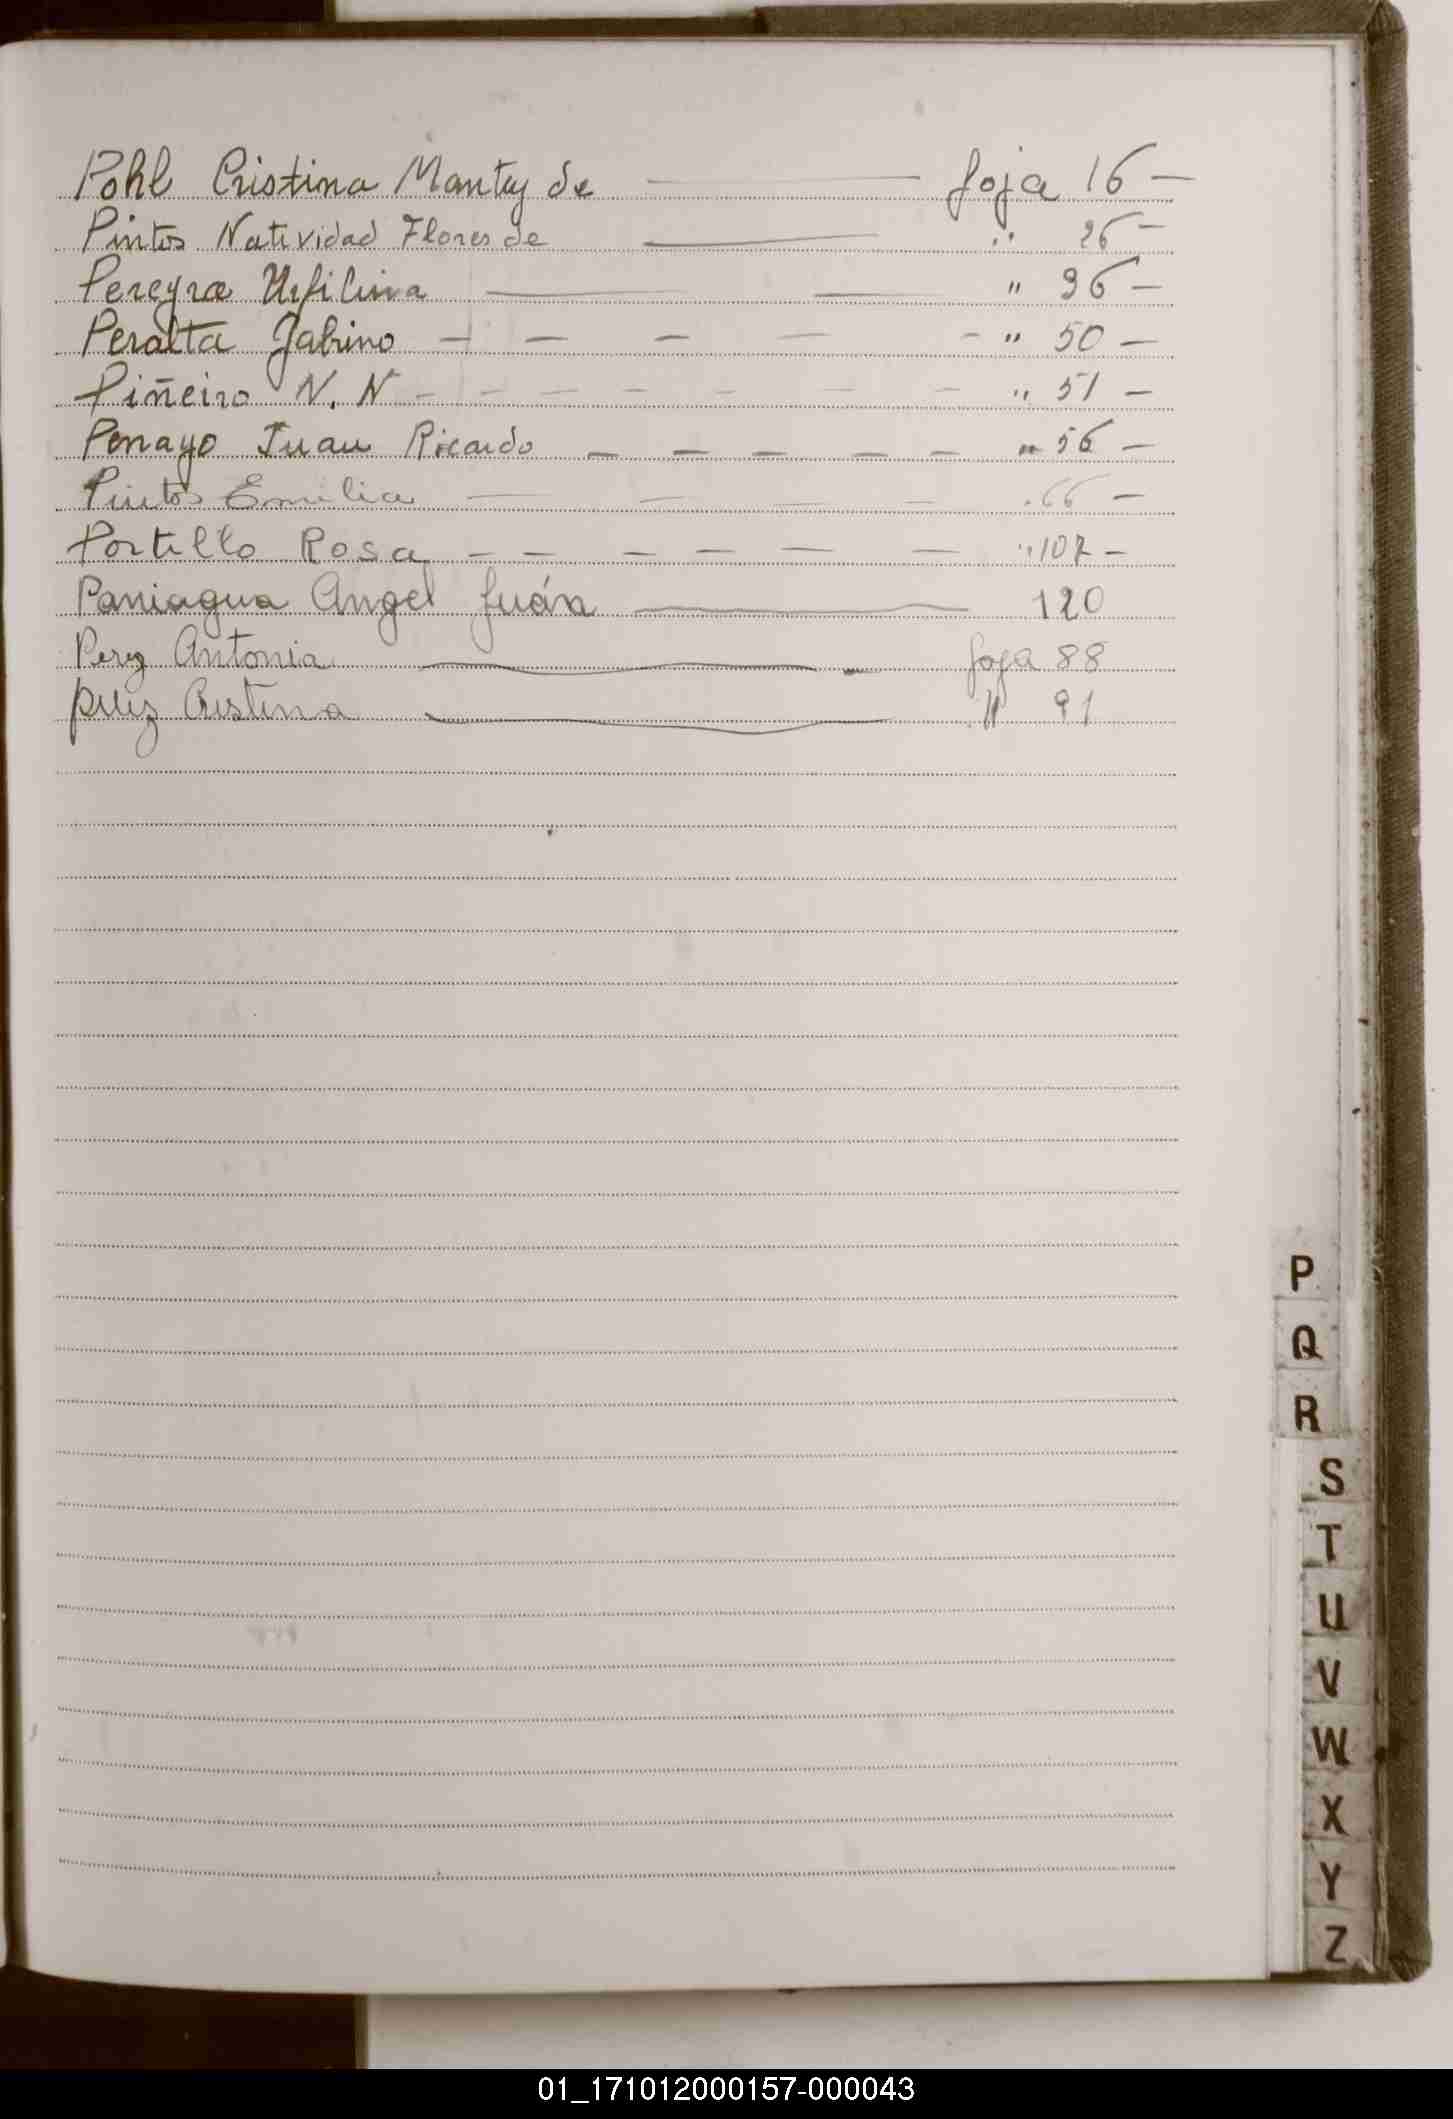 Pohl Cristina Manty de — foja 16 —
Pintos Natividad Flores de — " 26 —
Pereyra Urfilina — — " 36 —
Peralta Gabino — — — — - " 50 —
Piñeiro N. N - - - - - - - - " 51 —
Penayo Juan Ricardo — — — — — " 56 —
Pintos Emilia — — — — " 66 —
Portillo Rosa — — — — — — " 107 —
Paniagua Angel Juán — 120
Perez Antonia — foja 88
perez Cristina — " 91
P
Q
R
S
T
U
V
W
X
Y
Z
01_171012000157-000043